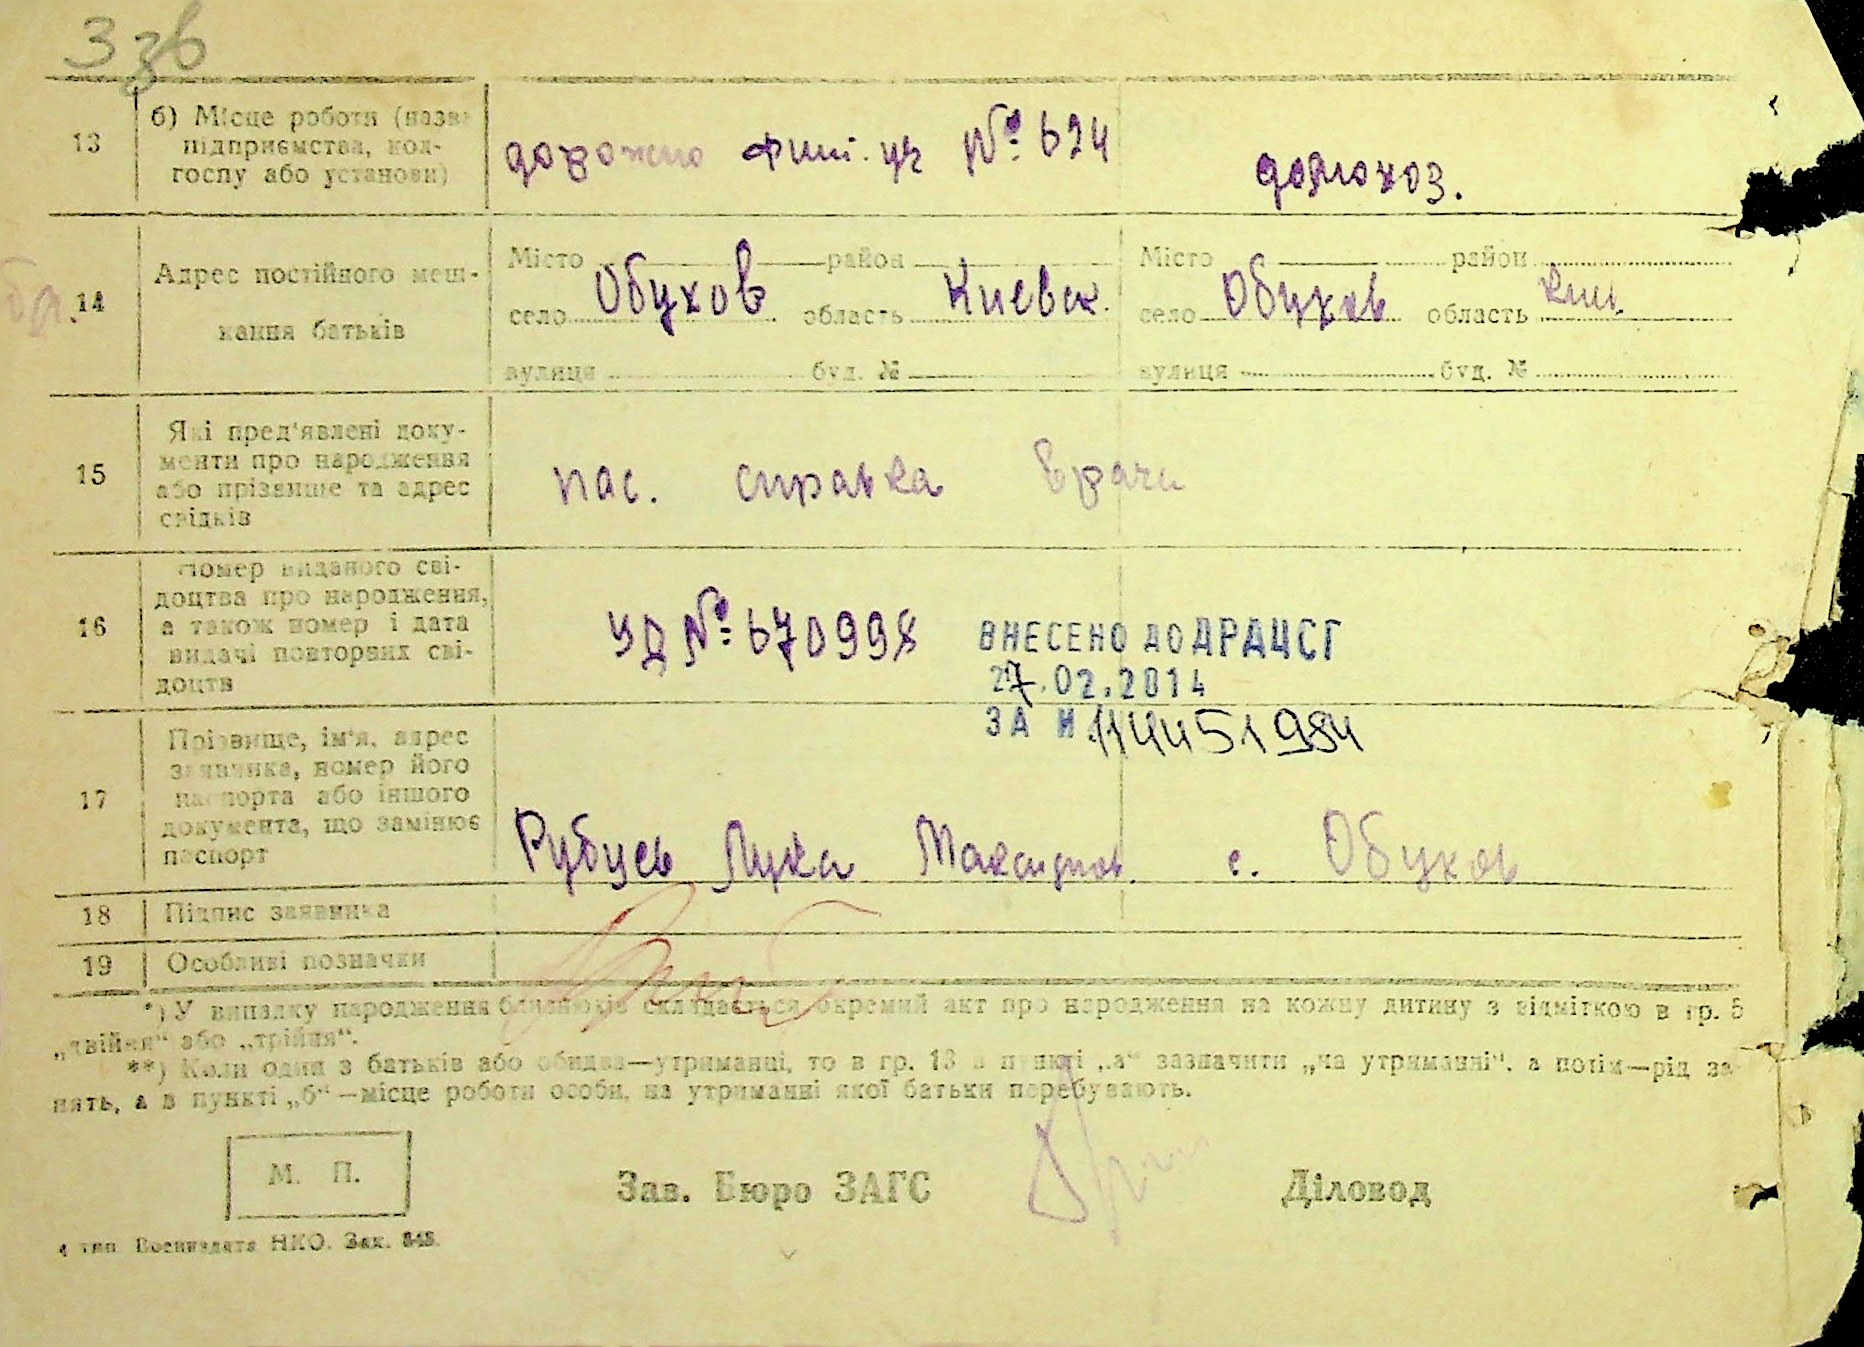 13
б) Місце роботи (назва
підприємства, кол-
госпу або установи)
№ 624
домохоз.
14
Адрес постійного меш-
кання батьків
Місто район
село Обухов область Киевск.
вулиця буд. №
Місто район
село Обухов область Киев.
вулиця буд. №
15
Які пред'явлені доку-
менти про народження
або прізвище та адрес
свідків
пас. справка врача
16
Номер виданого сві-
доцтва про народження,
а також номер і дата
видачі повторних сві-
доцтв
УД № 670998
ВНЕСЕНО ДО ДРАЦСГ
27.02.2014
ЗА №
17
Прізвище, ім'я, адрес
заявника, номер його
паспорта або іншого
документа, що замінює
паспорт
Лука Максимов. с. Обухов
18
Підпис заявника
19
Особливі позначки
*) У випадку народження близнюків складається окремий акт про народження на кожну дитину з відміткою в гр. 5
„двійня“ або „трійня“.
**) Коли один з батьків або обидва—утриманці, то в гр. 13 в пункті „а“ зазначити „на утриманні“, а потім—рід за-
нять, а в пункті „б“ —місце роботи особи, на утриманні якої батьки перебувають.
М. П.
Зав. Бюро ЗАГС
Діловод
НКО. Зак.